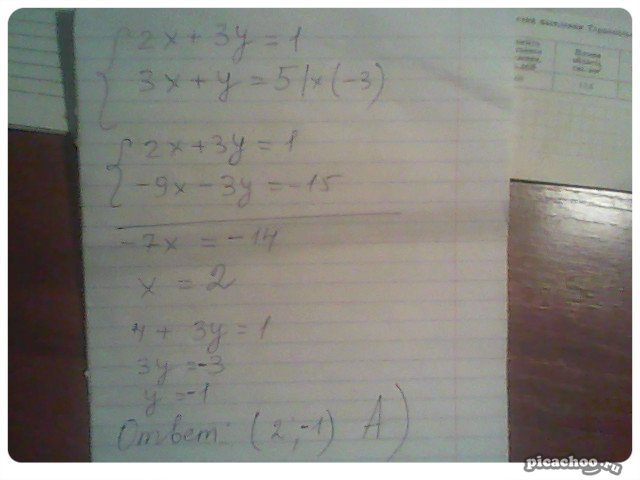 2x + 3y = 1
3x + y = 5 | x (-3)
2x + 3y = 1
-9x - 3y = -15
-7x = -14
x = 2
4 + 3y = 1
3y = -3
y = -1
Ответ: (2; -1) А)
picachoo.ru